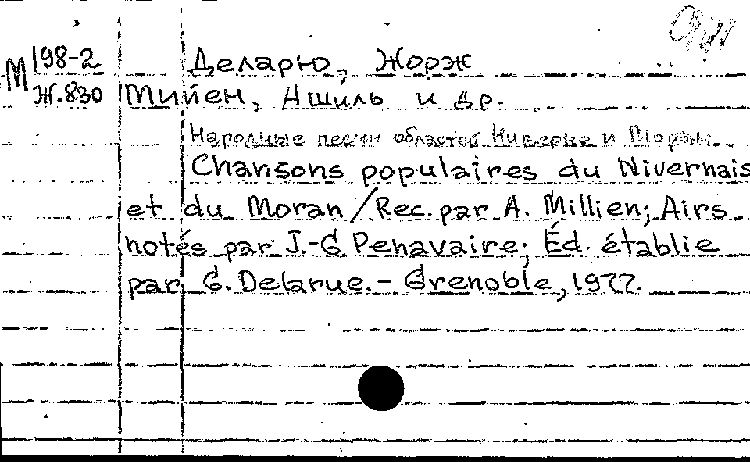 М 198-2 Деларю, Жорж
Ж.830 Мийен, Ашиль и др.
Народные песни областей Ниверне и Морван
Chansons populaires du Nivernais
et du Morvan / Rec. par A. Millien; Airs
notés par J.-G Penavaire; Éd. établie
par G. Delarue. - Grenoble, 1977.